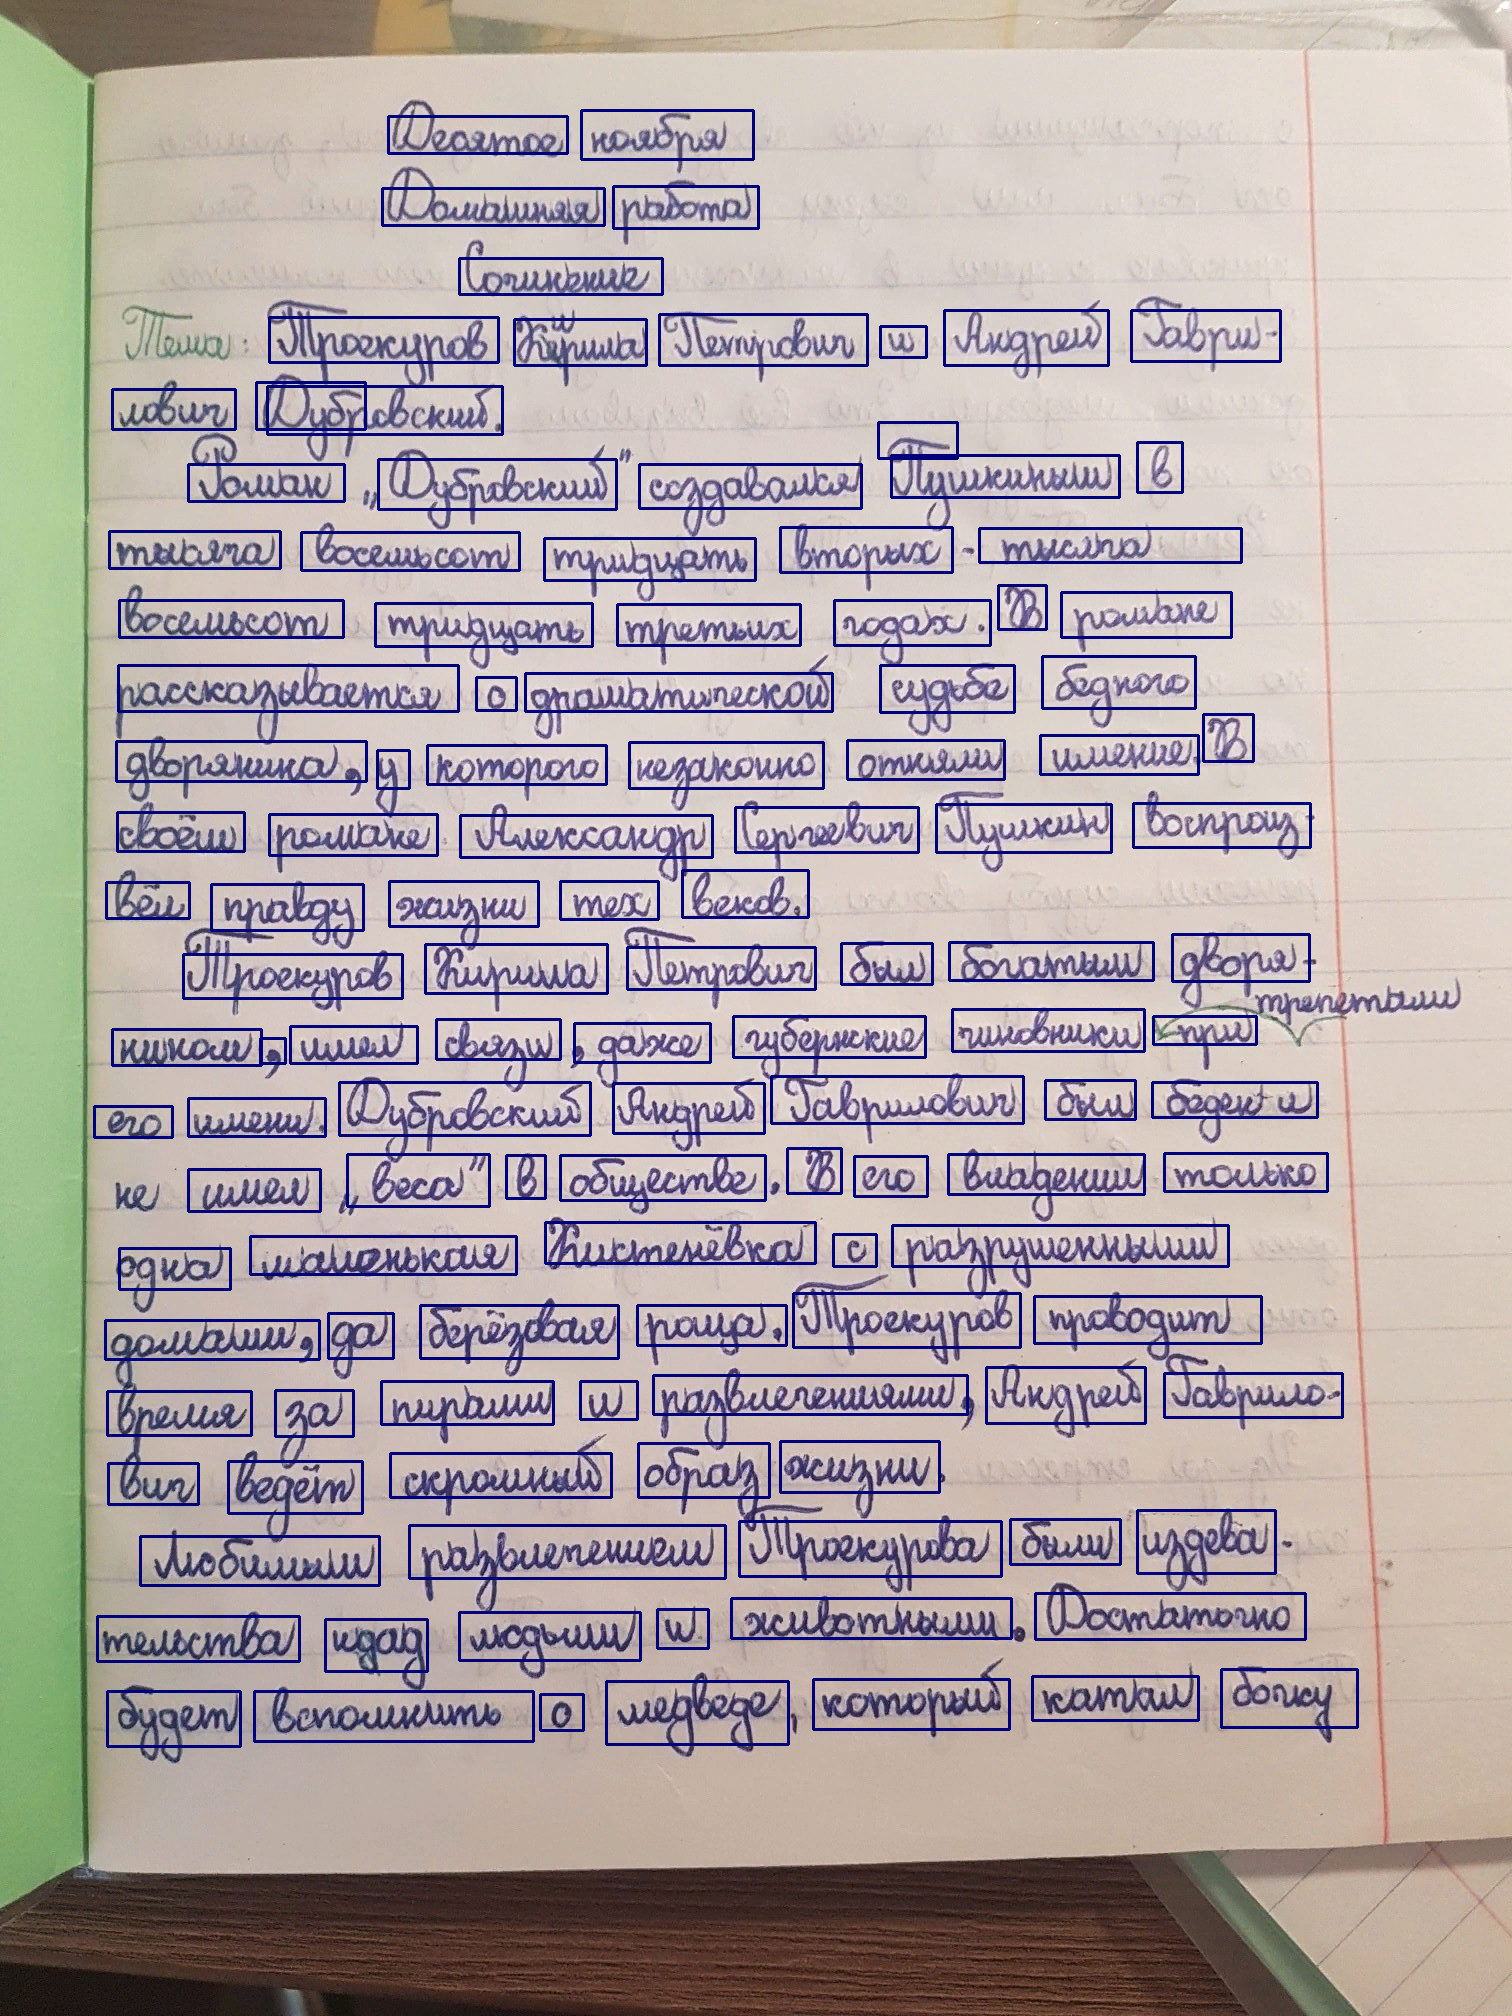 Десятое ноября
Домашняя работа
Сочинение
Тема: Троекуров Кирила Петрович и Андрей Гаври-
лович Дубровский.
Роман „Дубровский" создавался Пушкиным в
тысяча восемьсот тридцать вторых - тысяча
восемьсот тридцать третьих годах. В романе
рассказывается о драматической судьбе бедного
дворянина, у которого незаконно отняли имение. В
своём романе Александр Сергеевич Пушкин воспроиз-
вёл правду жизни тех веков.
Троекуров Кирила Петрович был богатым дворя-
трепетали
нином, имел связи, даже губернские чиновники при
его имени. Дубровский Андрей Гаврилович был беден и
не имел „веса" в обществе. В его владении только
одна маленькая Кистенёвка с разрушенными
домами, да берёзовая роща. Троекуров проводит
время за пирами и развлечениями, Андрей Гаврило-
вич ведёт скромный образ жизни.
Любимым развлечением Троекурова были издева-
тельства надад людьми и животными. Достаточно
будет вспомнить о медведе, который катал бочку